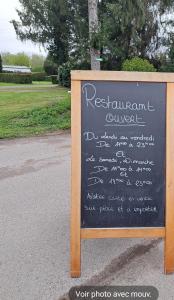 Restaurant
ouvert
Du lundi au vendredi
De 11h00 à 23h00
Et
Le samedi, Dimanche
De 11h00 à 14h00
et
De 18h00 à 23h00
sur place et à emporter
Voir photo avec mouv.